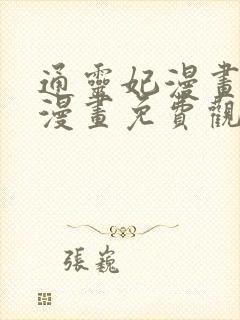 通靈妃漫畫
漫畫免費觀
張巍